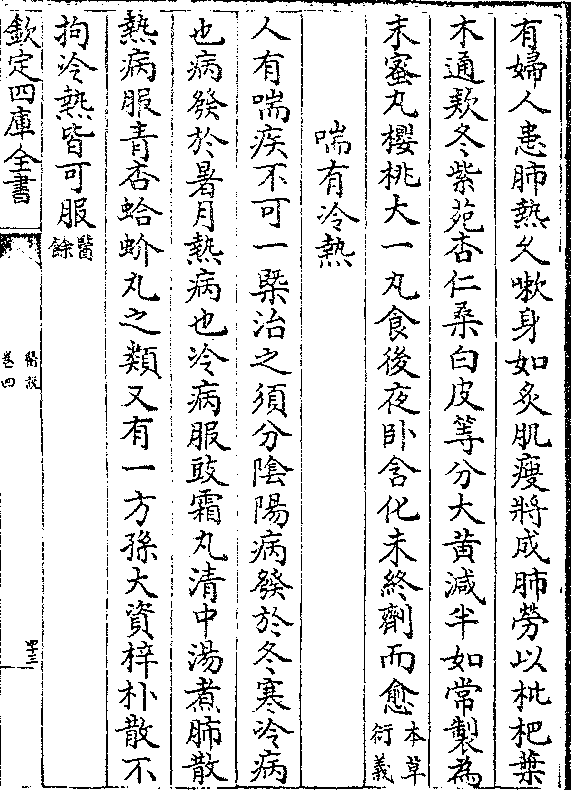 有婦人患肺熱久嗽身如炙肌瘦將成肺勞以枇杷葉
木通款冬紫菀杏仁桑白皮等分大黄減半如常製為
末蜜丸櫻桃大一丸食後夜卧含化未終劑而愈本草
衍義
喘有冷熱
人有喘疾不可一槩治之須分隂陽病發於冬寒冷病
也病發於暑月熱病也冷病服豉霜丸清中湯煮肺散
熱病服青杏蛤蚧丸之類又有一方孫大資梓朴散不
拘冷熱皆可服醫
餘
欽定四庫全書
醫說
卷四
四十三